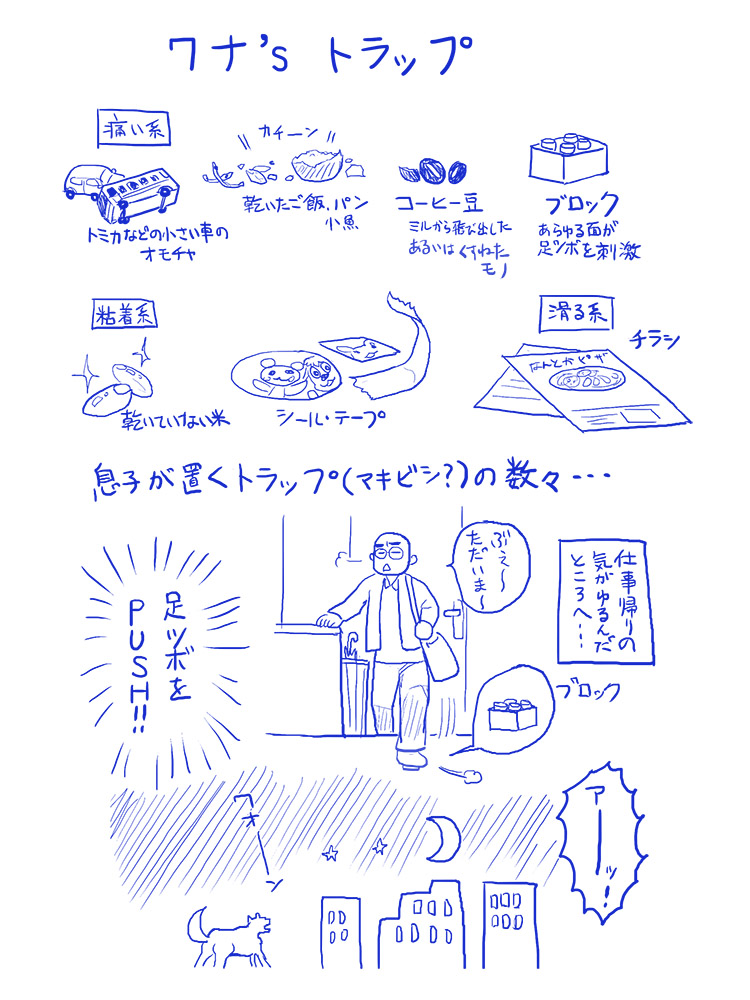 ワナ's トラップ
痛い系
トミカなどの小さい車の
オモチャ
カチーン
乾いたご飯、パン
小魚
コーヒー豆
ミルから飛び出した
あるいはくすねた
モノ
ブロック
あらゆる面が
足ツボを刺激
粘着系
乾いていない米
シール・テープ
滑る系
チラシ
なんとかピザ
息子が置くトラップ(マキビシ?)の数々・・・
仕事帰りの
気がゆるんだ
ところへ・・・
ぶえ〜
ただいま〜
ブロック
足ツボを
PUSH!!
アーッ!
ワオーン